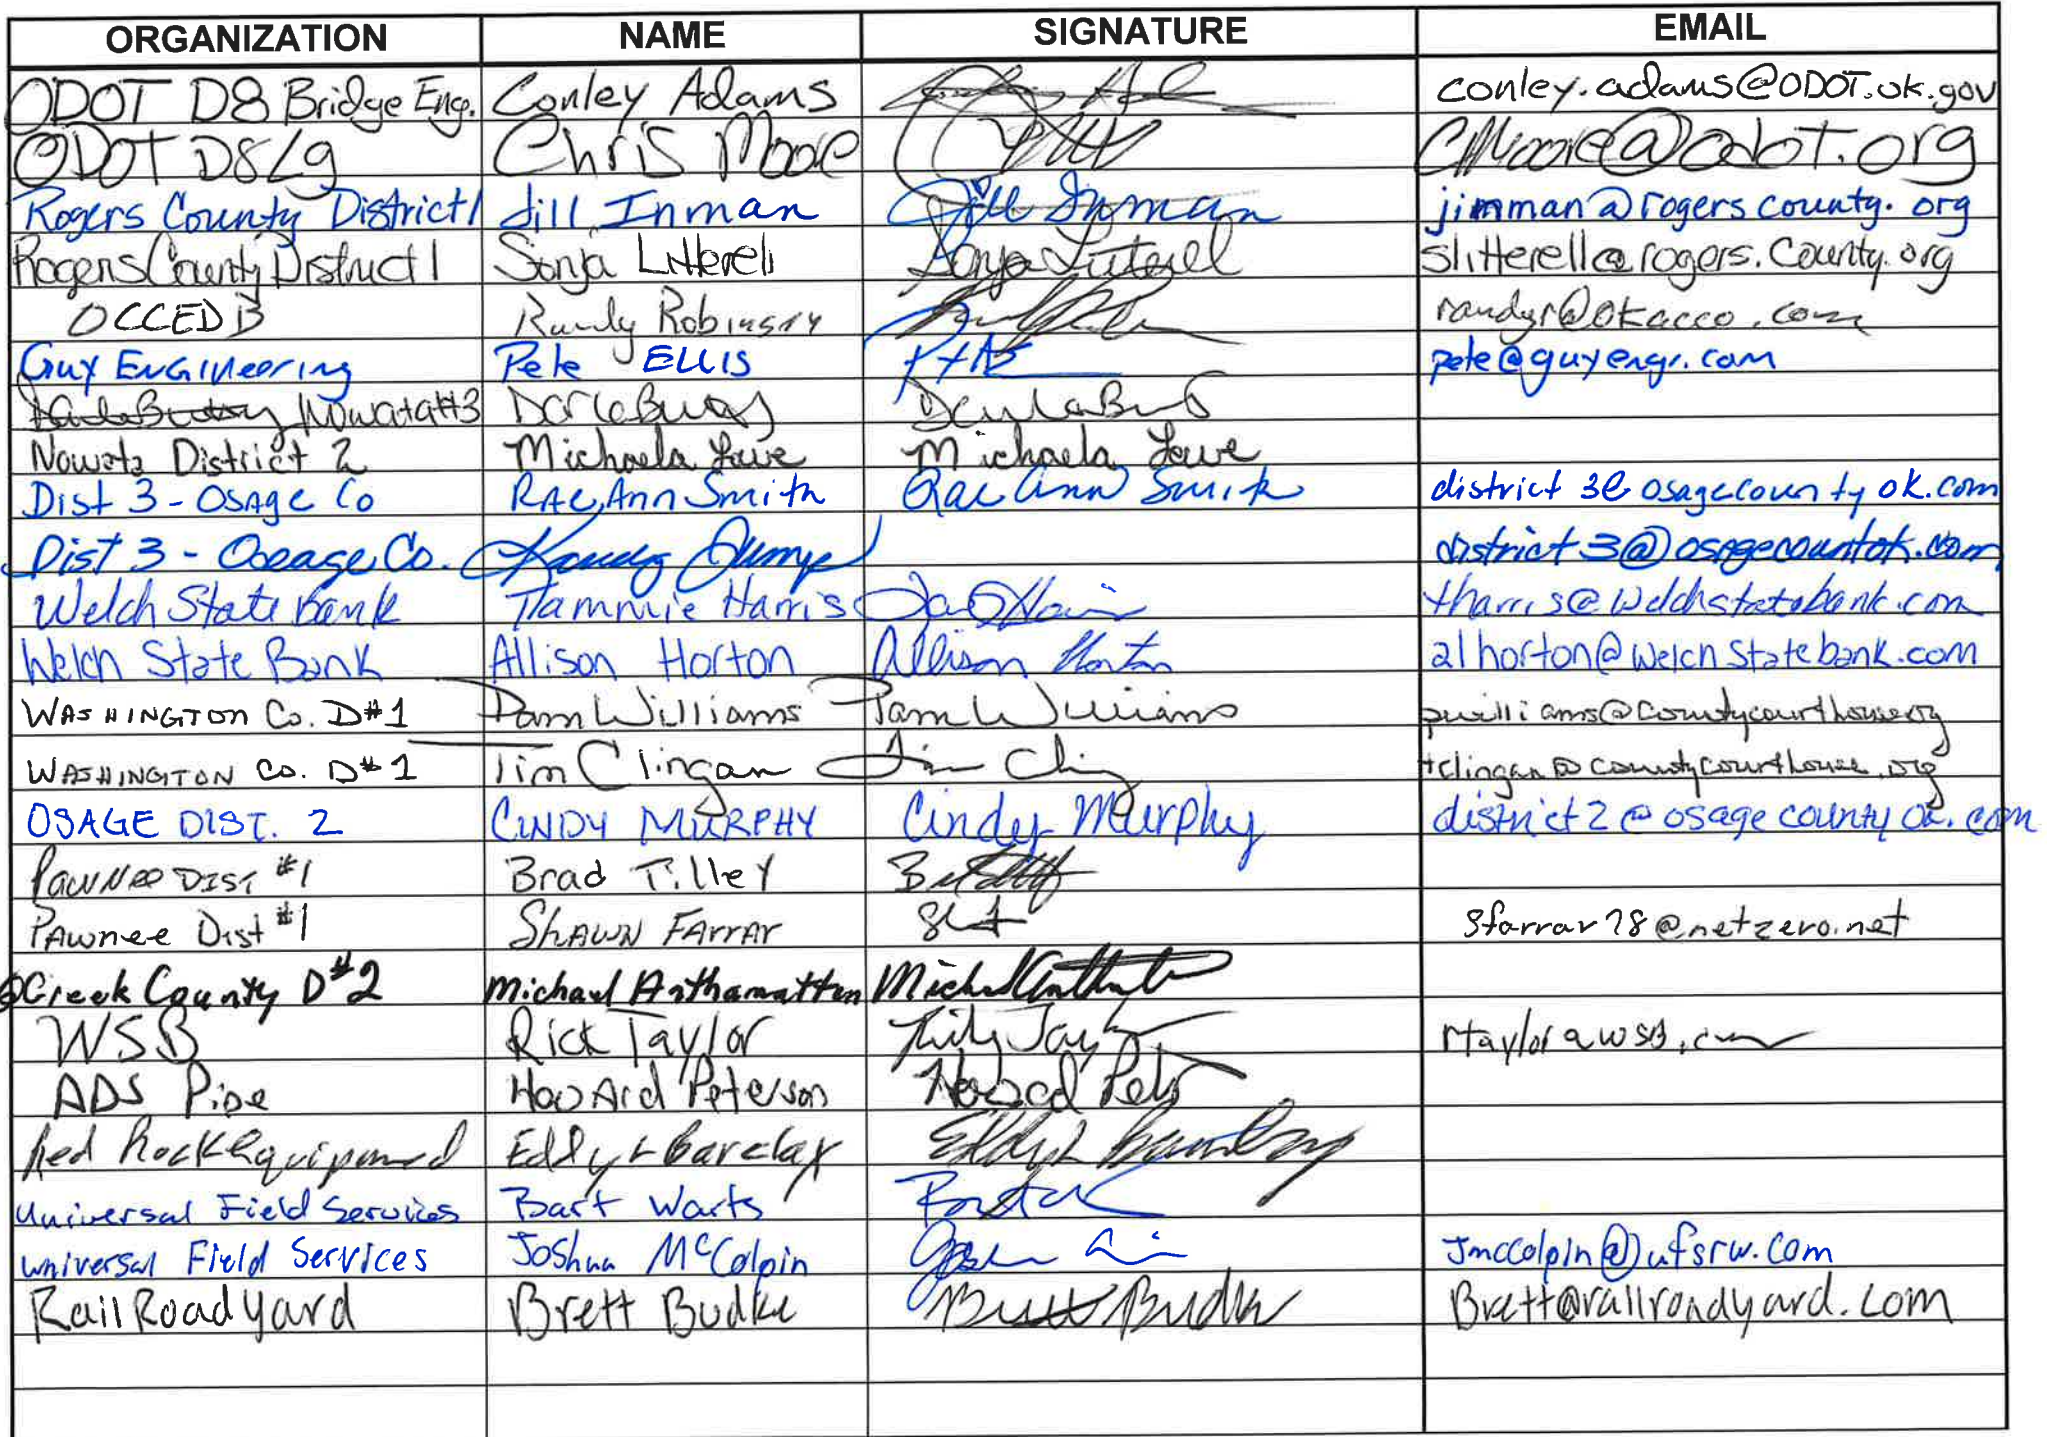 ORGANIZATION NAME SIGNATURE EMAIL
ODOT D8 Bridge Eng. Conley Adams conley.adams@ODOT.ok.gov
ODOT D8 Lg Chris Moore CMoore@odot.org
Rogers County District 1 Jill Inman Jill Inman jinman@rogerscounty.org
Rogers County District 1 Sonja Litterell Sonja Litterell slitterell@rogers.County.org
OCCEDB Randy Robinson randyr@okacco.com
Guy Engineering Pete ELLIS pete@guyengr.com
Nowata#3
Nowata District 2 Michaela Lowe Michaela Lowe
Dist 3 - Osage Co RAE Ann Smith Rae Ann Smith district3@osagecountyok.com
Dist 3 - Oseage Co. district3@osagecountok.com
Welch State bank Tammie Harris tharris@welchstatebank.com
Welch State Bank Allison Horton Allison Horton alhorton@welchstatebank.com
WASHINGTON Co. D#1 Pam Williams Pam Williams pwilliams@countycourthouse.org
WASHINGTON Co. D#1 Tim Clingan tclingan@countycourthouse.org
OSAGE DIST. 2 CINDY MURPHY Cindy Murphy district2@osagecountyok.com
PAWNEE DIST #1 Brad Tilley
PAwnee Dist #1 SHAWN FArrAr sfarrar78@netzero.net
Creek County D#2 Michael Anthamatten
WSB Rick Taylor rtaylor@wsb.com
ADS Pipe HowArd Peterson
Red Rock Equipment Eddy L Barclay
Universal Field Services Bart Watts
universal Field Services Joshua McColpin Jmccolpin@ufsrw.com
RailRoad Yard Brett Budke Brett Budke Brett@railroadyard.com